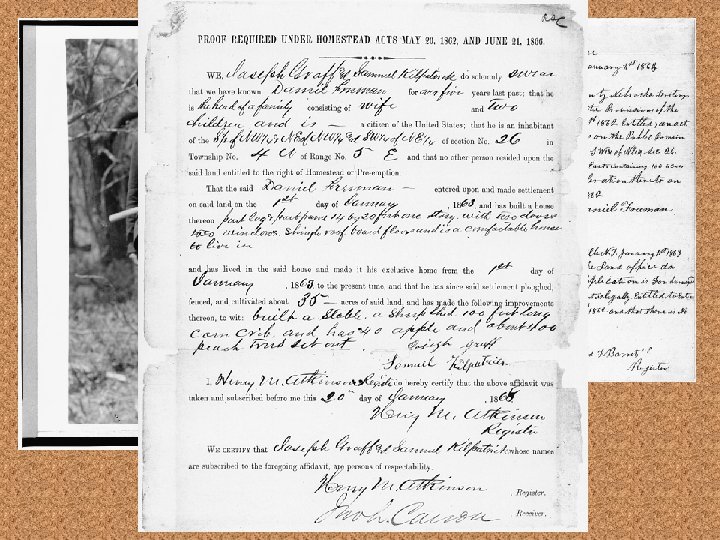 PROOF REQUIRED UNDER HOMESTEAD ACTS MAY 20, 1862, AND JUNE 21, 1866.
WE, Joseph Graff & Samuel Kilpatrick do solemnly swear
that we have known Daniel Freeman for over five years last past; that he
is the head of a family consisting of wife and Two
children and is — a citizen of the United States; that he is an inhabitant
of the S½ of NW¼ & NE¼ of NW¼ & SW¼ of NE¼ of section No. 26 in
Township No. 4 N of Range No. 5 E and that no other person resided upon the
said land entitled to the right of Homestead or Pre-emption.
That the said Daniel Freeman — entered upon and made settlement
on said land on the 1st day of January, 1863 and has built a house
thereon part log & part frame 14 by 20 feet one story, with two doors
two windows shingle roof board floor and is a comfortable house
to live in
and has lived in the said house and made it his exclusive home from the 1st day of
January, 1863 to the present time, and that he has since said settlement ploughed,
fenced, and cultivated about 35 — acres of said land, and has made the following improvements
thereon, to wit: built a Stable, a sheep shed 100 feet long
corn crib, and has 40 apple and about 400
peach trees set out.
Joseph Graff
Samuel Kilpatrick
I, Henry M. Atkinson Register do hereby certify that the above affidavit was
taken and subscribed before me this 20 day of January, 1868
Henry M. Atkinson
Register
WE CERTIFY that Joseph Graff & Samuel Kilpatrick whose names
are subscribed to the foregoing affidavit, are persons of respectability.
Henry M. Atkinson, Register.
Receiver.
January 1st 1863
of the
1862 entitled, an act
the Public Domain
Sec. 26.
containing 160 acres
Daniel Freeman
January 1st 1863
Land office do
application is for
legally entitled to
1862 and that there is no
Register